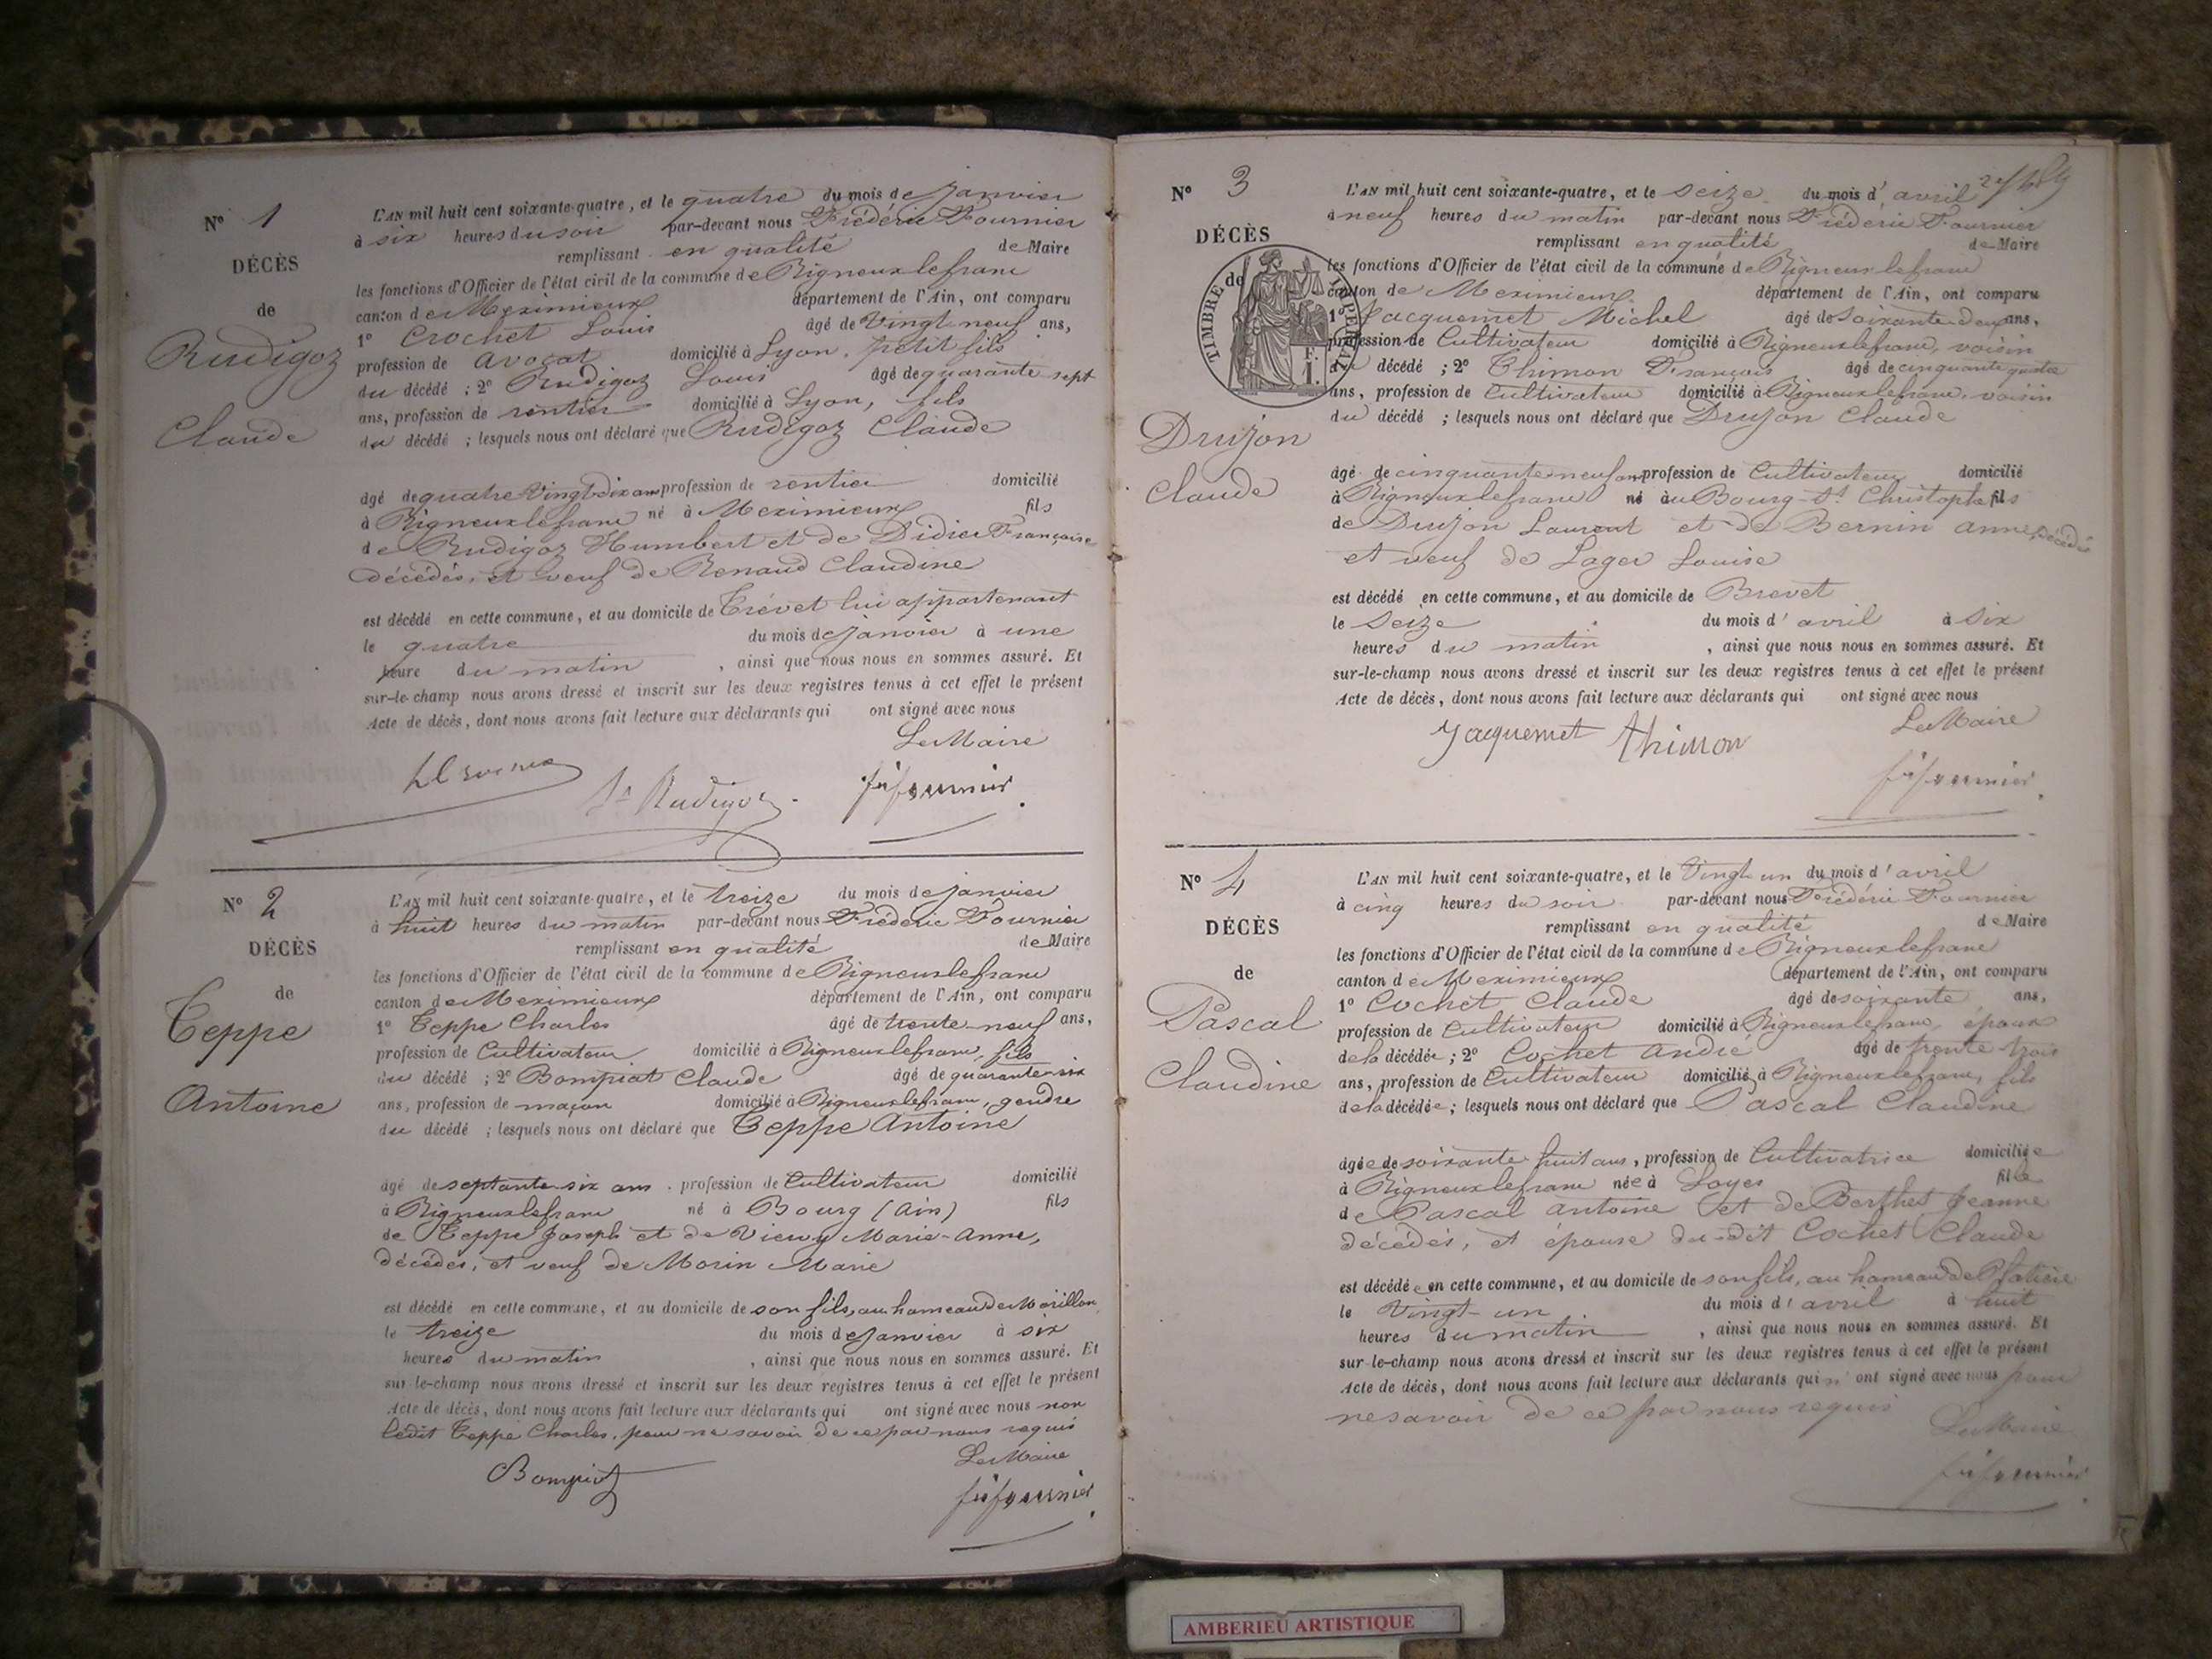 N° 1
DÉCÈS
de
Rudigoz
Claude
L'AN mil huit cent soixante-quatre, et le quatre du mois de janvier
à six heures du soir par-devant nous Frédéric Fournier
remplissant en qualité de Maire
les fonctions d'Officier de l'état civil de la commune de Rigneuxlefranc
canton de Meximieux département de l'Ain, ont comparu
1° Crochet Louis âgé de vingt neuf ans,
profession de avocat domicilié à Lyon, petit fils
du décédé ; 2° Rudigoz Louis âgé de quarante sept
ans, profession de rentier domicilié à Lyon, fils
du décédé ; lesquels nous ont déclaré que Rudigoz Claude
âgé de quatre vingt dix ans profession de rentier domicilié
à Rigneuxlefranc né à Meximieux fils
de Rudigoz Humbert et de Didier Françoise
décédés, et veuf de Renaud Claudine
est décédé en cette commune, et au domicile de Trévet lui appartenant
le quatre du mois de janvier à une
heure du matin , ainsi que nous nous en sommes assuré. Et
sur-le-champ nous avons dressé et inscrit sur les deux registres tenus à cet effet le présent
Acte de décès, dont nous avons fait lecture aux déclarants qui ont signé avec nous
Le Maire
Rudigoz
fr fournier
N° 2
DÉCÈS
de
Teppe
Antoine
L'AN mil huit cent soixante-quatre, et le treize du mois de janvier
à huit heures du matin par-devant nous Frédéric Fournier
remplissant en qualité de Maire
les fonctions d'Officier de l'état civil de la commune de Rigneuxlefranc
canton de Meximieux département de l'Ain, ont comparu
1° Teppe Charles âgé de trente-neuf ans,
profession de Cultivateur domicilié à Rigneuxlefranc, fils
du décédé ; 2° Bompiat Claude âgé de quarante-six
ans, profession de maçon domicilié à Rigneuxlefranc, gendre
du décédé ; lesquels nous ont déclaré que Teppe Antoine
âgé de septante-six ans . profession de Cultivateur domicilié
à Rigneuxlefranc né à Bourg (Ain) fils
de Teppe Joseph et de Marie-Anne,
décédés, et veuf de Morin Marie
est décédé en cette commune, et au domicile de son fils, au hameau de Morillon
le treize du mois de janvier à six
heures du matin , ainsi que nous nous en sommes assuré. Et
sur-le-champ nous avons dressé et inscrit sur les deux registres tenus à cet effet le présent
Acte de décès, dont nous avons fait lecture aux déclarants qui ont signé avec nous non
ledit Teppe Charles, pour ne savoir de ce par nous requis
Le Maire
Bompiat
fr fournier
N° 3
DÉCÈS
de
TIMBRE IMPERIAL
1 F.
Drujon
Claude
L'AN mil huit cent soixante-quatre, et le seize du mois d' avril
à neuf heures du matin par-devant nous Frédéric Fournier
remplissant en qualité de Maire
les fonctions d'Officier de l'état civil de la commune de Rigneuxlefranc
canton de Meximieux département de l'Ain, ont comparu
1° Jacquemet Michel âgé de soixante-deux ans,
profession de Cultivateur domicilié à Rigneuxlefranc, voisin
du décédé ; 2° Thimon François âgé de cinquante quatre
ans, profession de Cultivateur domicilié à Rigneuxlefranc, voisin
du décédé ; lesquels nous ont déclaré que Drujon Claude
âgé de cinquante-neuf ans profession de Cultivateur domicilié
à Rigneuxlefranc né au Bourg-St Christophe fils
de Drujon Laurent et de Bernin Anne, décédés
et veuf de Lager Louise
est décédé en cette commune, et au domicile de Brevet
le seize du mois d' avril à six
heures du matin , ainsi que nous nous en sommes assuré. Et
sur-le-champ nous avons dressé et inscrit sur les deux registres tenus à cet effet le présent
Acte de décès, dont nous avons fait lecture aux déclarants qui ont signé avec nous
Le Maire
Jacquemet thimon
fr fournier
N° 4
DÉCÈS
de
Pascal
Claudine
L'AN mil huit cent soixante-quatre, et le vingt un du mois d' avril
à cinq heures du soir par-devant nous Frédéric Fournier
remplissant en qualité de Maire
les fonctions d'Officier de l'état civil de la commune de Rigneuxlefranc
canton de Meximieux département de l'Ain, ont comparu
1° Cochet Claude âgé de soixante ans,
profession de Cultivateur domicilié à Rigneuxlefranc, époux
de la décédée ; 2° Cochet André âgé de trente-trois
ans, profession de Cultivateur domicilié à Rigneuxlefranc, fils
de la décédée ; lesquels nous ont déclaré que Pascal Claudine
âgée de soixante-huit ans, profession de Cultivatrice domiciliée
à Rigneuxlefranc née à Loyes fille
de Pascal Antoine et de Berthet Jeanne
décédés, et épouse du-dit Cochet Claude
est décédée en cette commune, et au domicile de son fils, au hameau de
le vingt-un du mois d' avril à huit
heures du matin , ainsi que nous nous en sommes assuré. Et
sur-le-champ nous avons dressé et inscrit sur les deux registres tenus à cet effet le présent
Acte de décès, dont nous avons fait lecture aux déclarants qui n' ont signé avec nous pour
ne savoir de ce par nous requis
Le Maire
fr fournier
AMBERIEU ARTISTIQUE